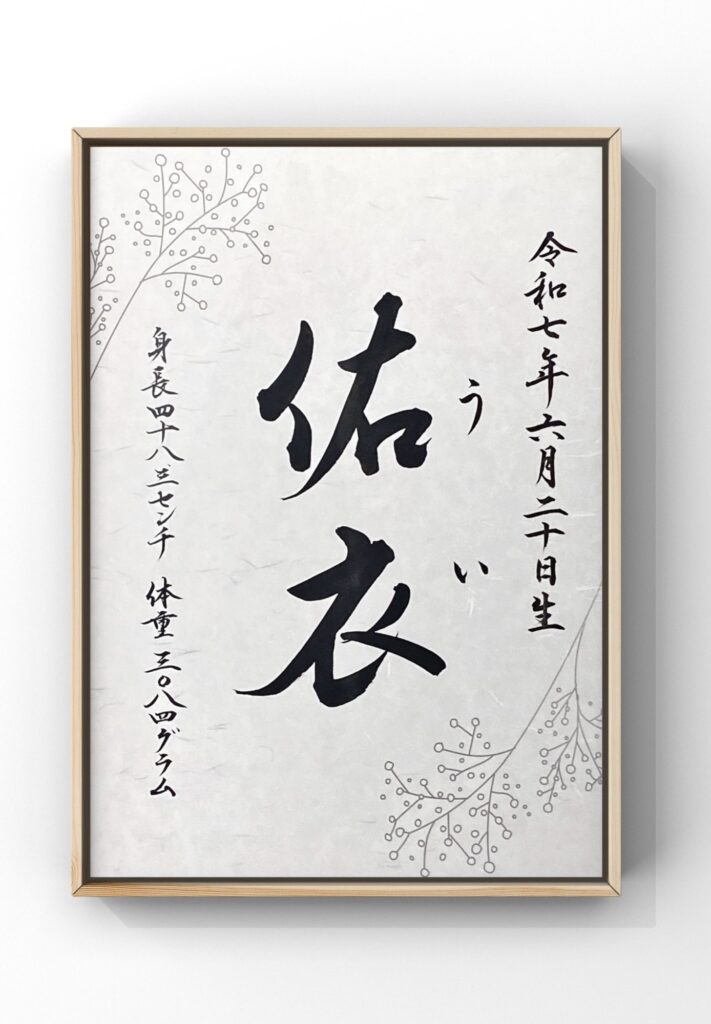 令和七年六月二十日生
佑衣
うい
身長四十八.三センチ 体重三〇八四グラム